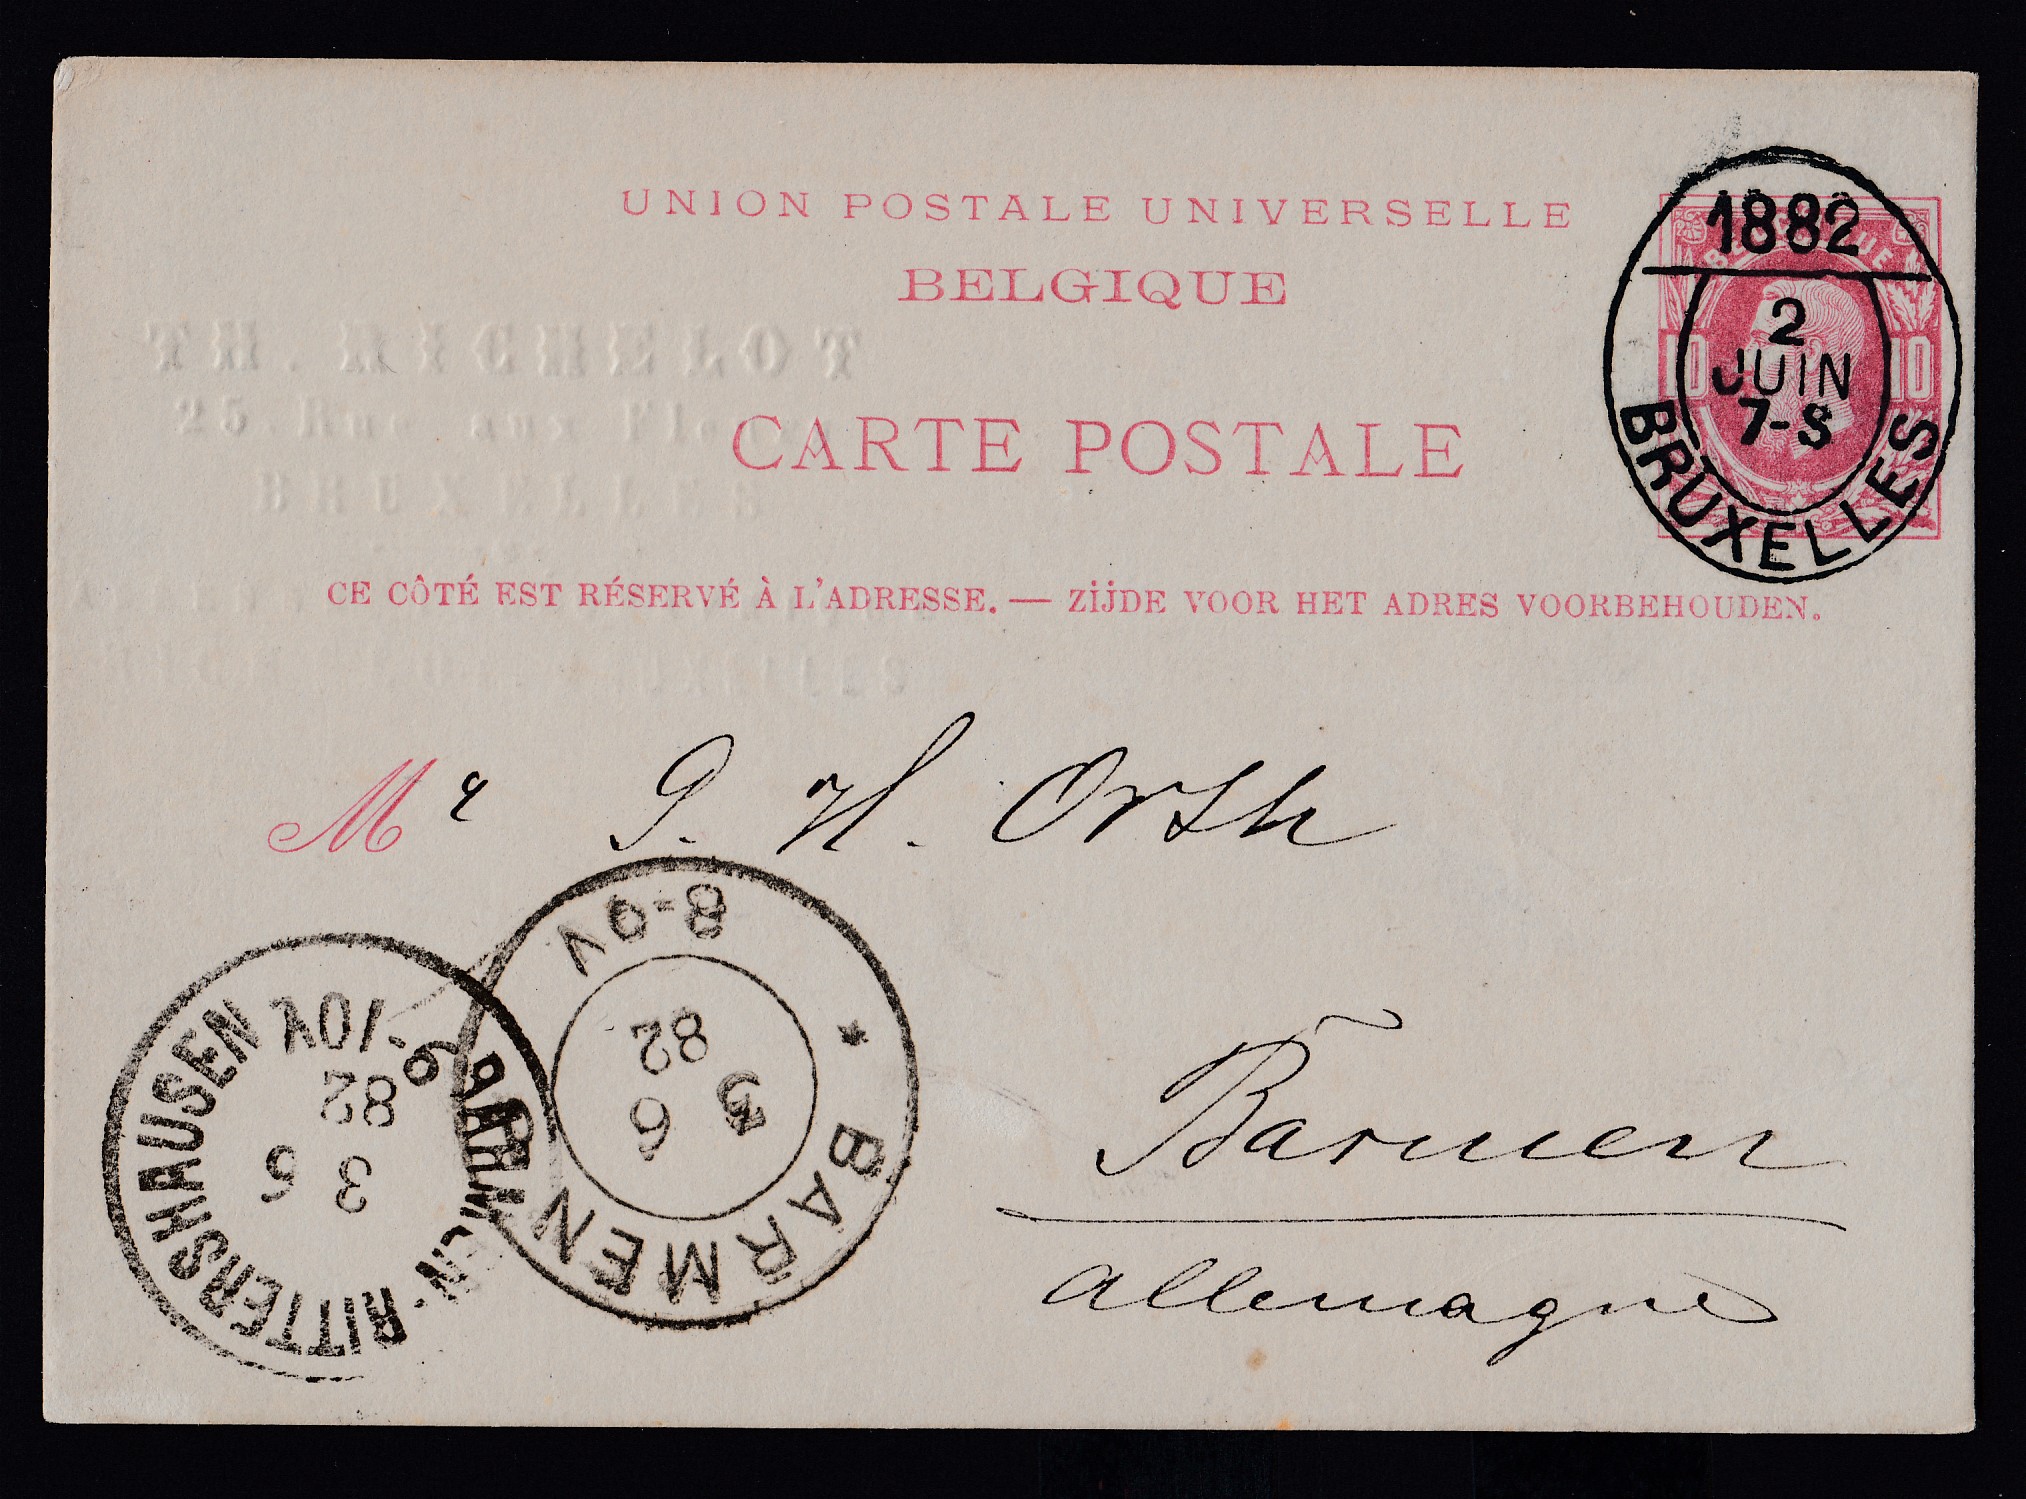 UNION POSTALE UNIVERSELLE
BELGIQUE
TH. MICHELOT
25. Rue aux Fleurs
BRUXELLES
CARTE POSTALE
CE CÔTÉ EST RÉSERVÉ À L'ADRESSE. — ZIJDE VOOR HET ADRES VOORBEHOUDEN.
1882
2
JUIN
7-S
BRUXELLES
10 10
Mr G. H. Orth
Barmen
Allemagne
BARMEN
3
6
82
8-9V
BARMEN-RITTERSHAUSEN
3 6
82
9-10V